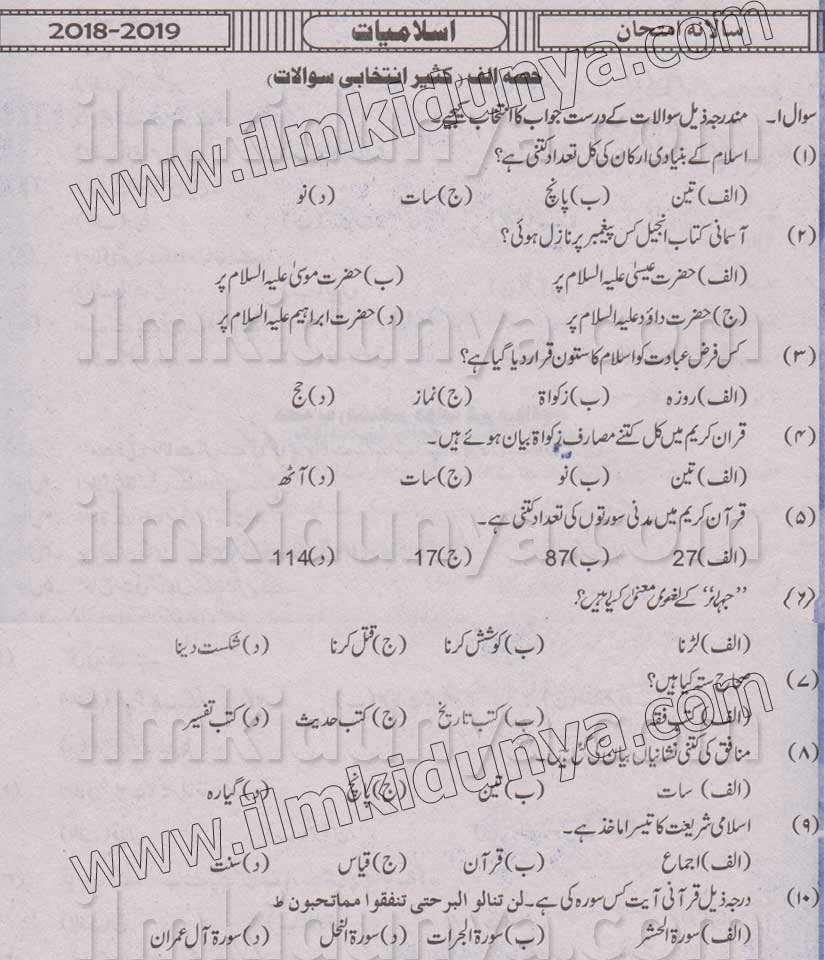 سالانہ امتحان اسلامیات 2018-2019
حصہ الف (کثیر انتخابی سوالات)
سوال ا۔ مندرجہ ذیل سوالات کے درست جواب کا انتخاب کیجیے۔
(۱) اسلام کے بنیادی ارکان کی کل تعداد کتنی ہے؟
(الف) تین (ب) پانچ (ج) سات (د) نو
(۲) آسمانی کتاب انجیل کس پیغمبر پر نازل ہوئی؟
(الف) حضرت عیسیٰ علیہ السلام پر (ب) حضرت موسیٰ علیہ السلام پر
(ج) حضرت داؤد علیہ السلام پر (د) حضرت ابراہیم علیہ السلام پر
(۳) کس فرض عبادت کو اسلام کا ستون قرار دیا گیا ہے؟
(الف) روزہ (ب) زکواۃ (ج) نماز (د) حج
(۴) قران کریم میں کل کتنے مصارف زکواۃ بیان ہوئے ہیں۔
(الف) تین (ب) نو (ج) سات (د) آٹھ
(۵) قرآن کریم میں مدنی سورتوں کی تعداد کتنی ہے۔
(الف) 27 (ب) 87 (ج) 17 (د) 114
(۶) کے لغوی معنی کیا ہیں؟
(الف) لڑنا (ب) کوشش کرنا (ج) قتل کرنا (د) شکست دینا
(۷) صحاح ستہ کیا ہیں؟
(الف) کتب فقہ (ب) کتب تاریخ (ج) کتب حدیث (د) کتب تفسیر
(۸) منافق کی کتنی نشانیاں بیان کی گئی ہیں۔
(الف) سات (ب) تین (ج) پانچ (د) گیارہ
(۹) اسلامی شریعت کا تیسرا ماخذ ہے۔
(الف) اجماع (ب) قرآن (ج) قیاس (د) سنت
(۱۰) درجہ ذیل قرآنی آیت کس سورہ کی ہے۔ لن تنالو البر حتی تنفقوا مماتحبون ط
(الف) سورۃ الحشر (ب) سورۃ الحجرات (د) سورۃ النحل (د) سورۃ آل عمران
www.ilmkidunya.com
www.ilmkidunya.com
ilmkidunya.com
ilmkidunya.com
ilmkidunya.com
ilmkidunya.com
ilmkidunya.com